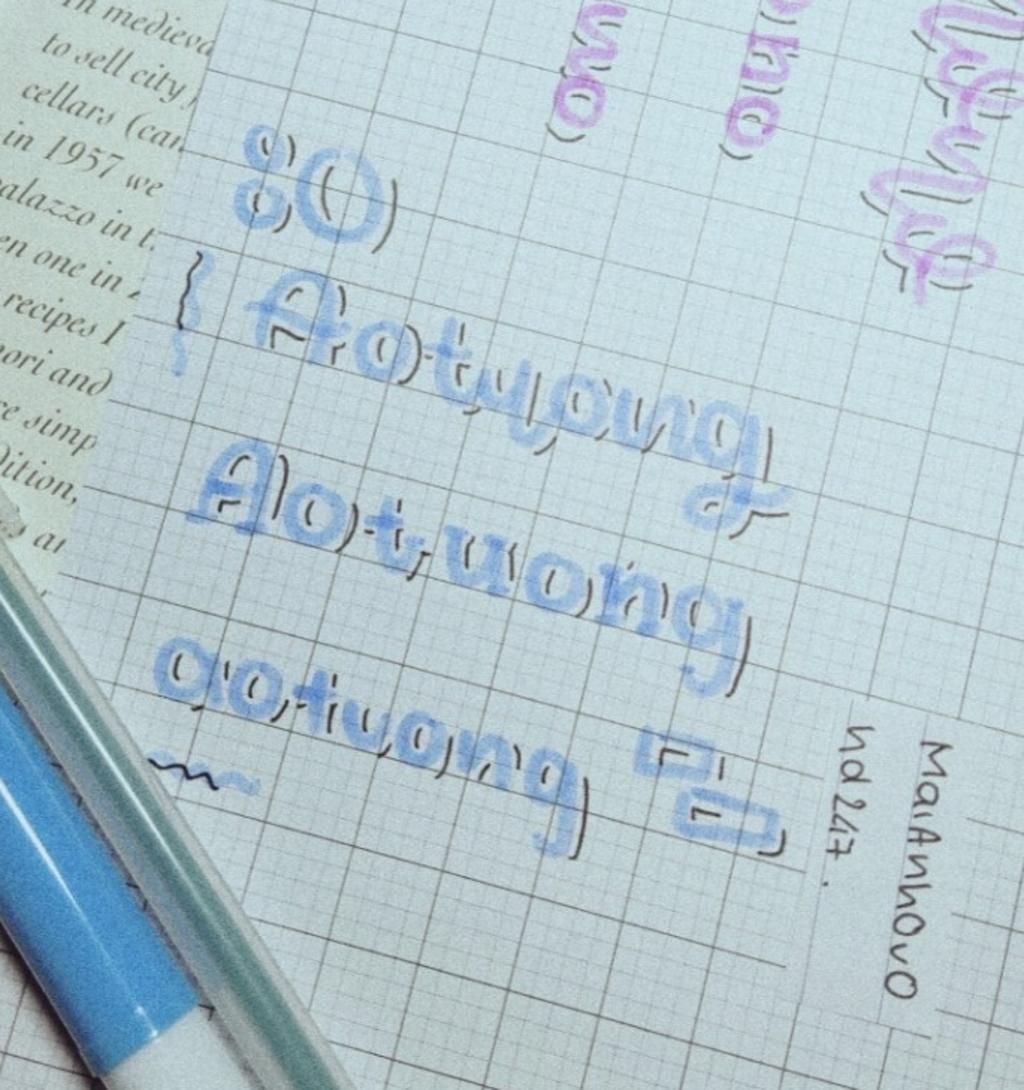 In medieva
to sell city
cellars (can
in 1957 we
palazzo in t.
en one in
recipes I
nori and
re simp
dition,
Aotuong
Aotuong
aotuong
MaiAnhOvO
hd247.